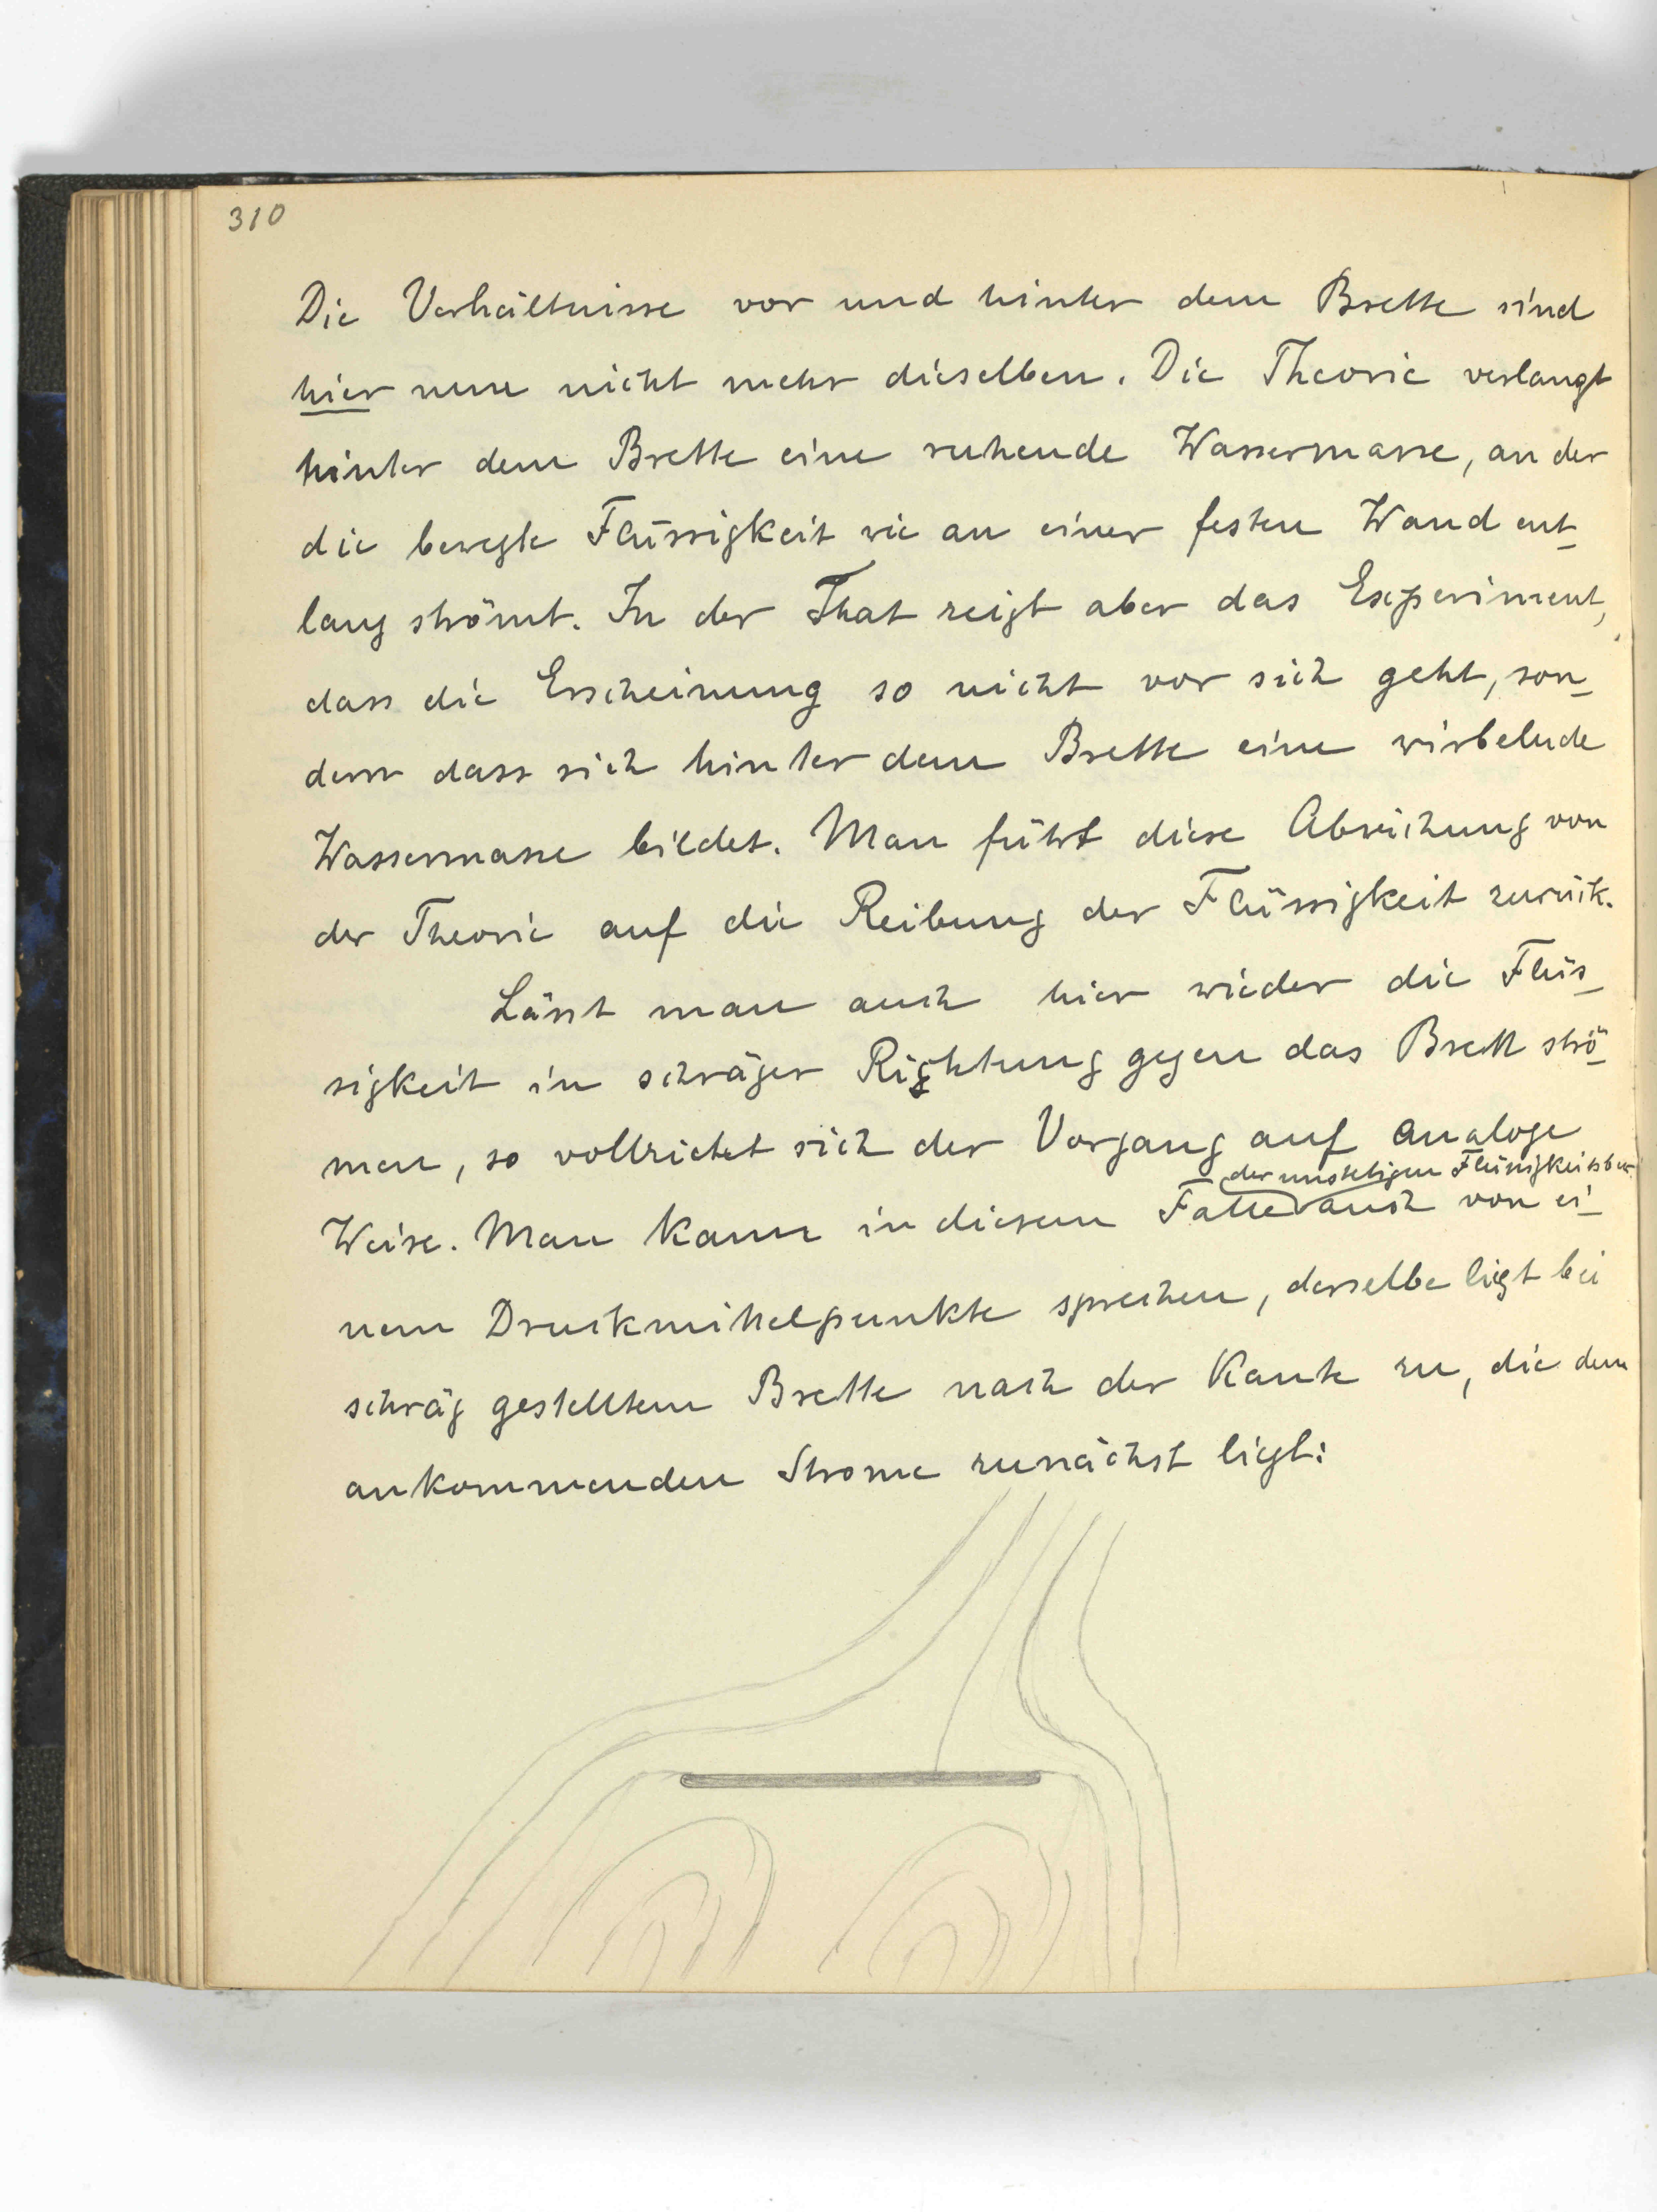 310
Die Verhältnisse vor und hinter dem Brette sind
hier nun nicht mehr dieselben. Die Theorie verlangt
hinter dem Brette eine ruhende Wassermasse, an der
die bewegte Flüssigkeit wie an einer festen Wand ent-
lang strömt. In der That zeigt aber das Experiment,
dass die Erscheinung so nicht vor sich geht, son-
dern dass sich hinter dem Brette eine wirbelnde
Wassermasse bildet. Man führt diese Abweichung von
der Theorie auf die Reibung der Flüssigkeit zurück.
Lässt man auch hier wieder die Flüs-
sigkeit in schräger Richtung gegen das Brett strö-
men, so vollzieht sich der Vorgang auf analoge
der unstetigen Flüssigkeitsbew.
Weise. Man kann in diesem Falle auch von ei-
nem Druckmittelpunkte sprechen, derselbe liegt bei
schräg gestelltem Brette nach der Kante zu, die dem
ankommenden Strome zunächst liegt: